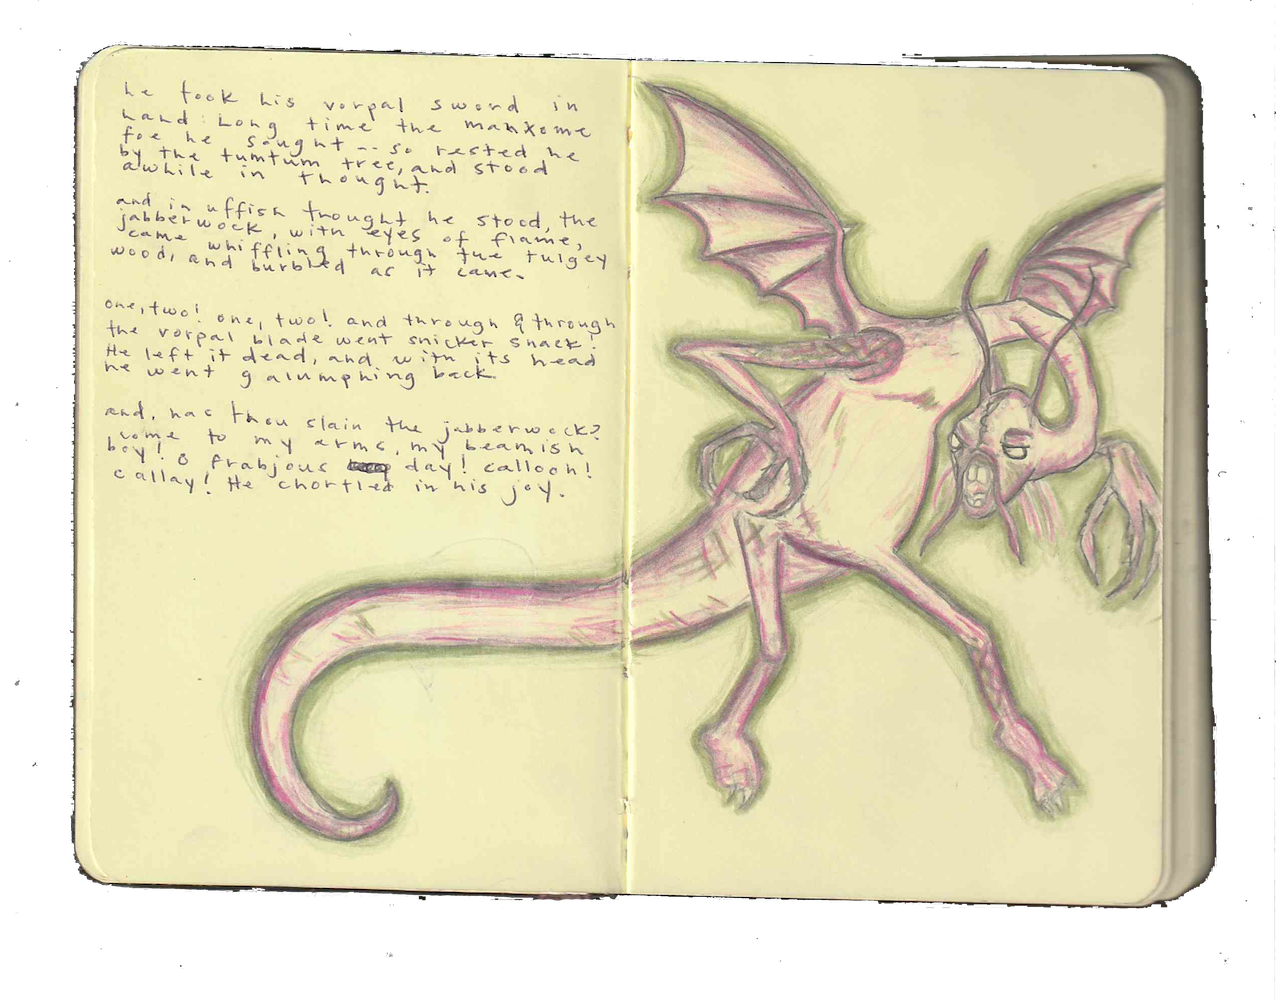 he took his vorpal sword in
hand: Long time the manxome
foe he sought -- so rested he
by the tumtum tree, and stood
awhile in thought.
and in uffish thought he stood, the
jabberwock, with eyes of flame,
came whiffling through the tulgey
wood, and burbled as it came.
one, two! one, two! and through & through
the vorpal blade went snicker snack!
He left it dead, and with its head
he went galumphing back
and, has thou slain the jabberwock?
come to my arms, my beamish
boy! O frabjous day! callooh!
callay! He chortled in his joy.